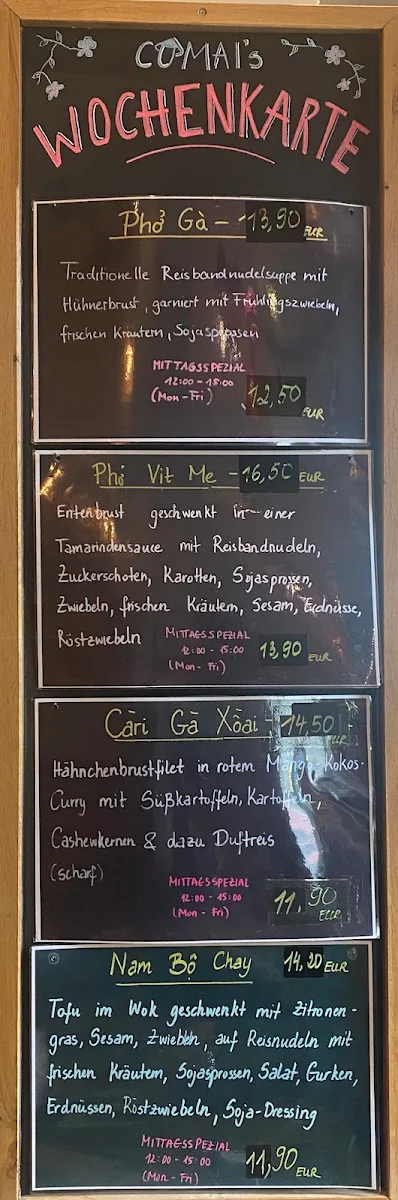 COMAI's
WOCHENKARTE
Phở Gà - 13,90 EUR
Traditionelle Reisbandnudelsuppe mit
Hühnerbrust, garniert mit Frühlingszwiebeln,
frischen Kräutern, Sojasprossen
MITTAGSSPEZIAL
12:00 - 15:00
(Mon - Fri)
12,50
EUR
Phở Vit Me - 16,50 EUR
Entenbrust geschwenkt in einer
Tamarindensauce mit Reisbandnudeln,
Zuckerschoten, Karotten, Sojasprossen,
Zwiebeln, frischen Kräutern, Sesam, Erdnüsse,
Röstzwiebeln
MITTAGSSPEZIAL
12:00 - 15:00
(Mon - Fri)
13,90 EUR
Cà ri Gà Xoài - 14,50
EUR
Hähnchenbrustfilet in rotem Mango-Kokos-
Curry mit Süßkartoffeln, Kartoffeln,
Cashewkernen & dazu Duftreis
(scharf)
MITTAGSSPEZIAL
12:00 - 15:00
(Mon - Fri)
11,90
EUR
Nam Bộ Chay 14,20 EUR
Tofu im Wok geschwenkt mit Zitronen-
gras, Sesam, Zwiebeln, auf Reisnudeln mit
frischen Kräutern, Sojasprossen, Salat, Gurken,
Erdnüssen, Röstzwiebeln, Soja-Dressing
MITTAGSSPEZIAL
12:00 - 15:00
(Mon - Fri)
11,90 EUR